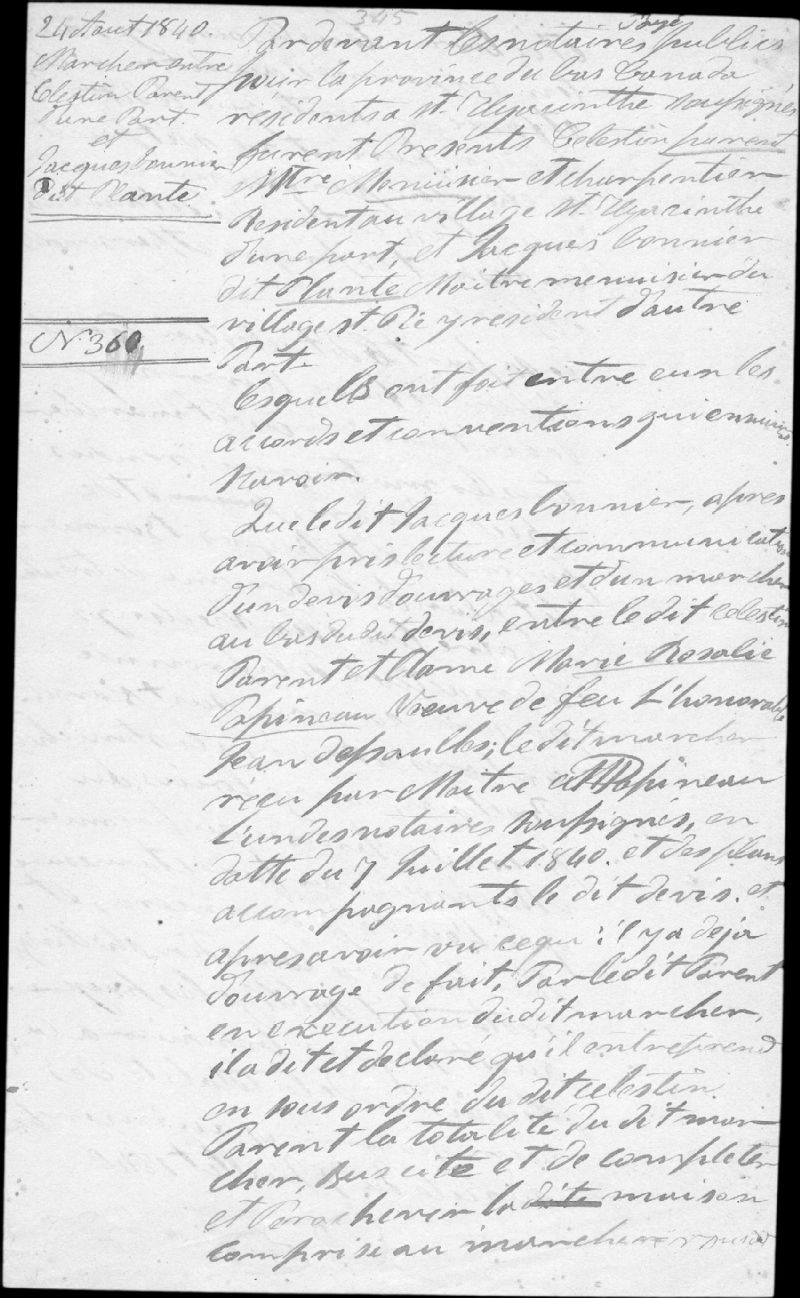 345
24 Aout 1840.
Marcher entre
Celestin Parent
d'une Part.
et
Jacques bonnier
dit Plante
N. 360.
Pardevant les notaires publics
pour la province du bas Canada
residents a st. Hyacinthe soussignés
furent Presents Celestin parent
Mtre Menuisier et charpentier
Resident au village st. Hyacinthe
d'une part, et Jacques bonnier
dit Plante Maitre menuisier du
village st. Pie y resident d'autre
Part.
Lesquells ont fait entre eux les
accords et conventions qui
Savoir.
Que le dit Jacques bonnier, apres
avoir pris lecture et communication
d'un devis d'ouvrages et d'un marcher
au bas du dit devis, entre le dit celestin
Parent et Dame Marie Rosalie
Papineau Veuve de feu L'honorable
Jean dessaulles; le dit marcher
reçu par Maitre Papineau
L'un des notaires soussignés, en
datte du 7 Juillet 1840. et des plans
accompagnants le dit devis. et
apres avoir vu cequ'il y a deja
d'ouvrage de fait, Par le dit Parent
en execution du dit marcher,
il a dit et declaré qu'il entreprend
en sous ordre du dit celestin
Parent la totalité du dit mar
cher, sus cité et de completer
et Parachever la dite maison
comprise au marcher